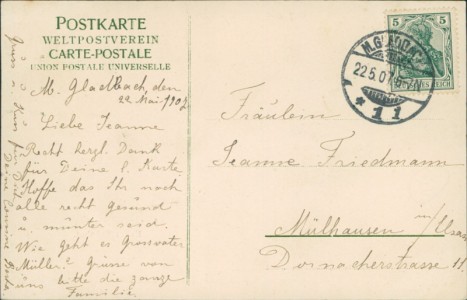 POSTKARTE
WELTPOSTVEREIN
CARTE-POSTALE
UNION POSTALE UNIVERSELLE
M. Gladbach, den
22. Mai 1907
Liebe Jeanne
Recht herzl. Dank
für Deine l. Karte
Hoffe das Ihr noch
alle recht gesund
u. munter seid.
Wie geht es Grossvater
Müller? Grüsse von
uns bitte die ganze
Familie
Gruss u. Kuss
Deine
5 5
M. GLADBACH
22.5.07. 6-7N
* 1 1
REICH
Fräulein
Jeanne Friedmann
Mülhausen i/Elsass
Dornacherstrasse 11